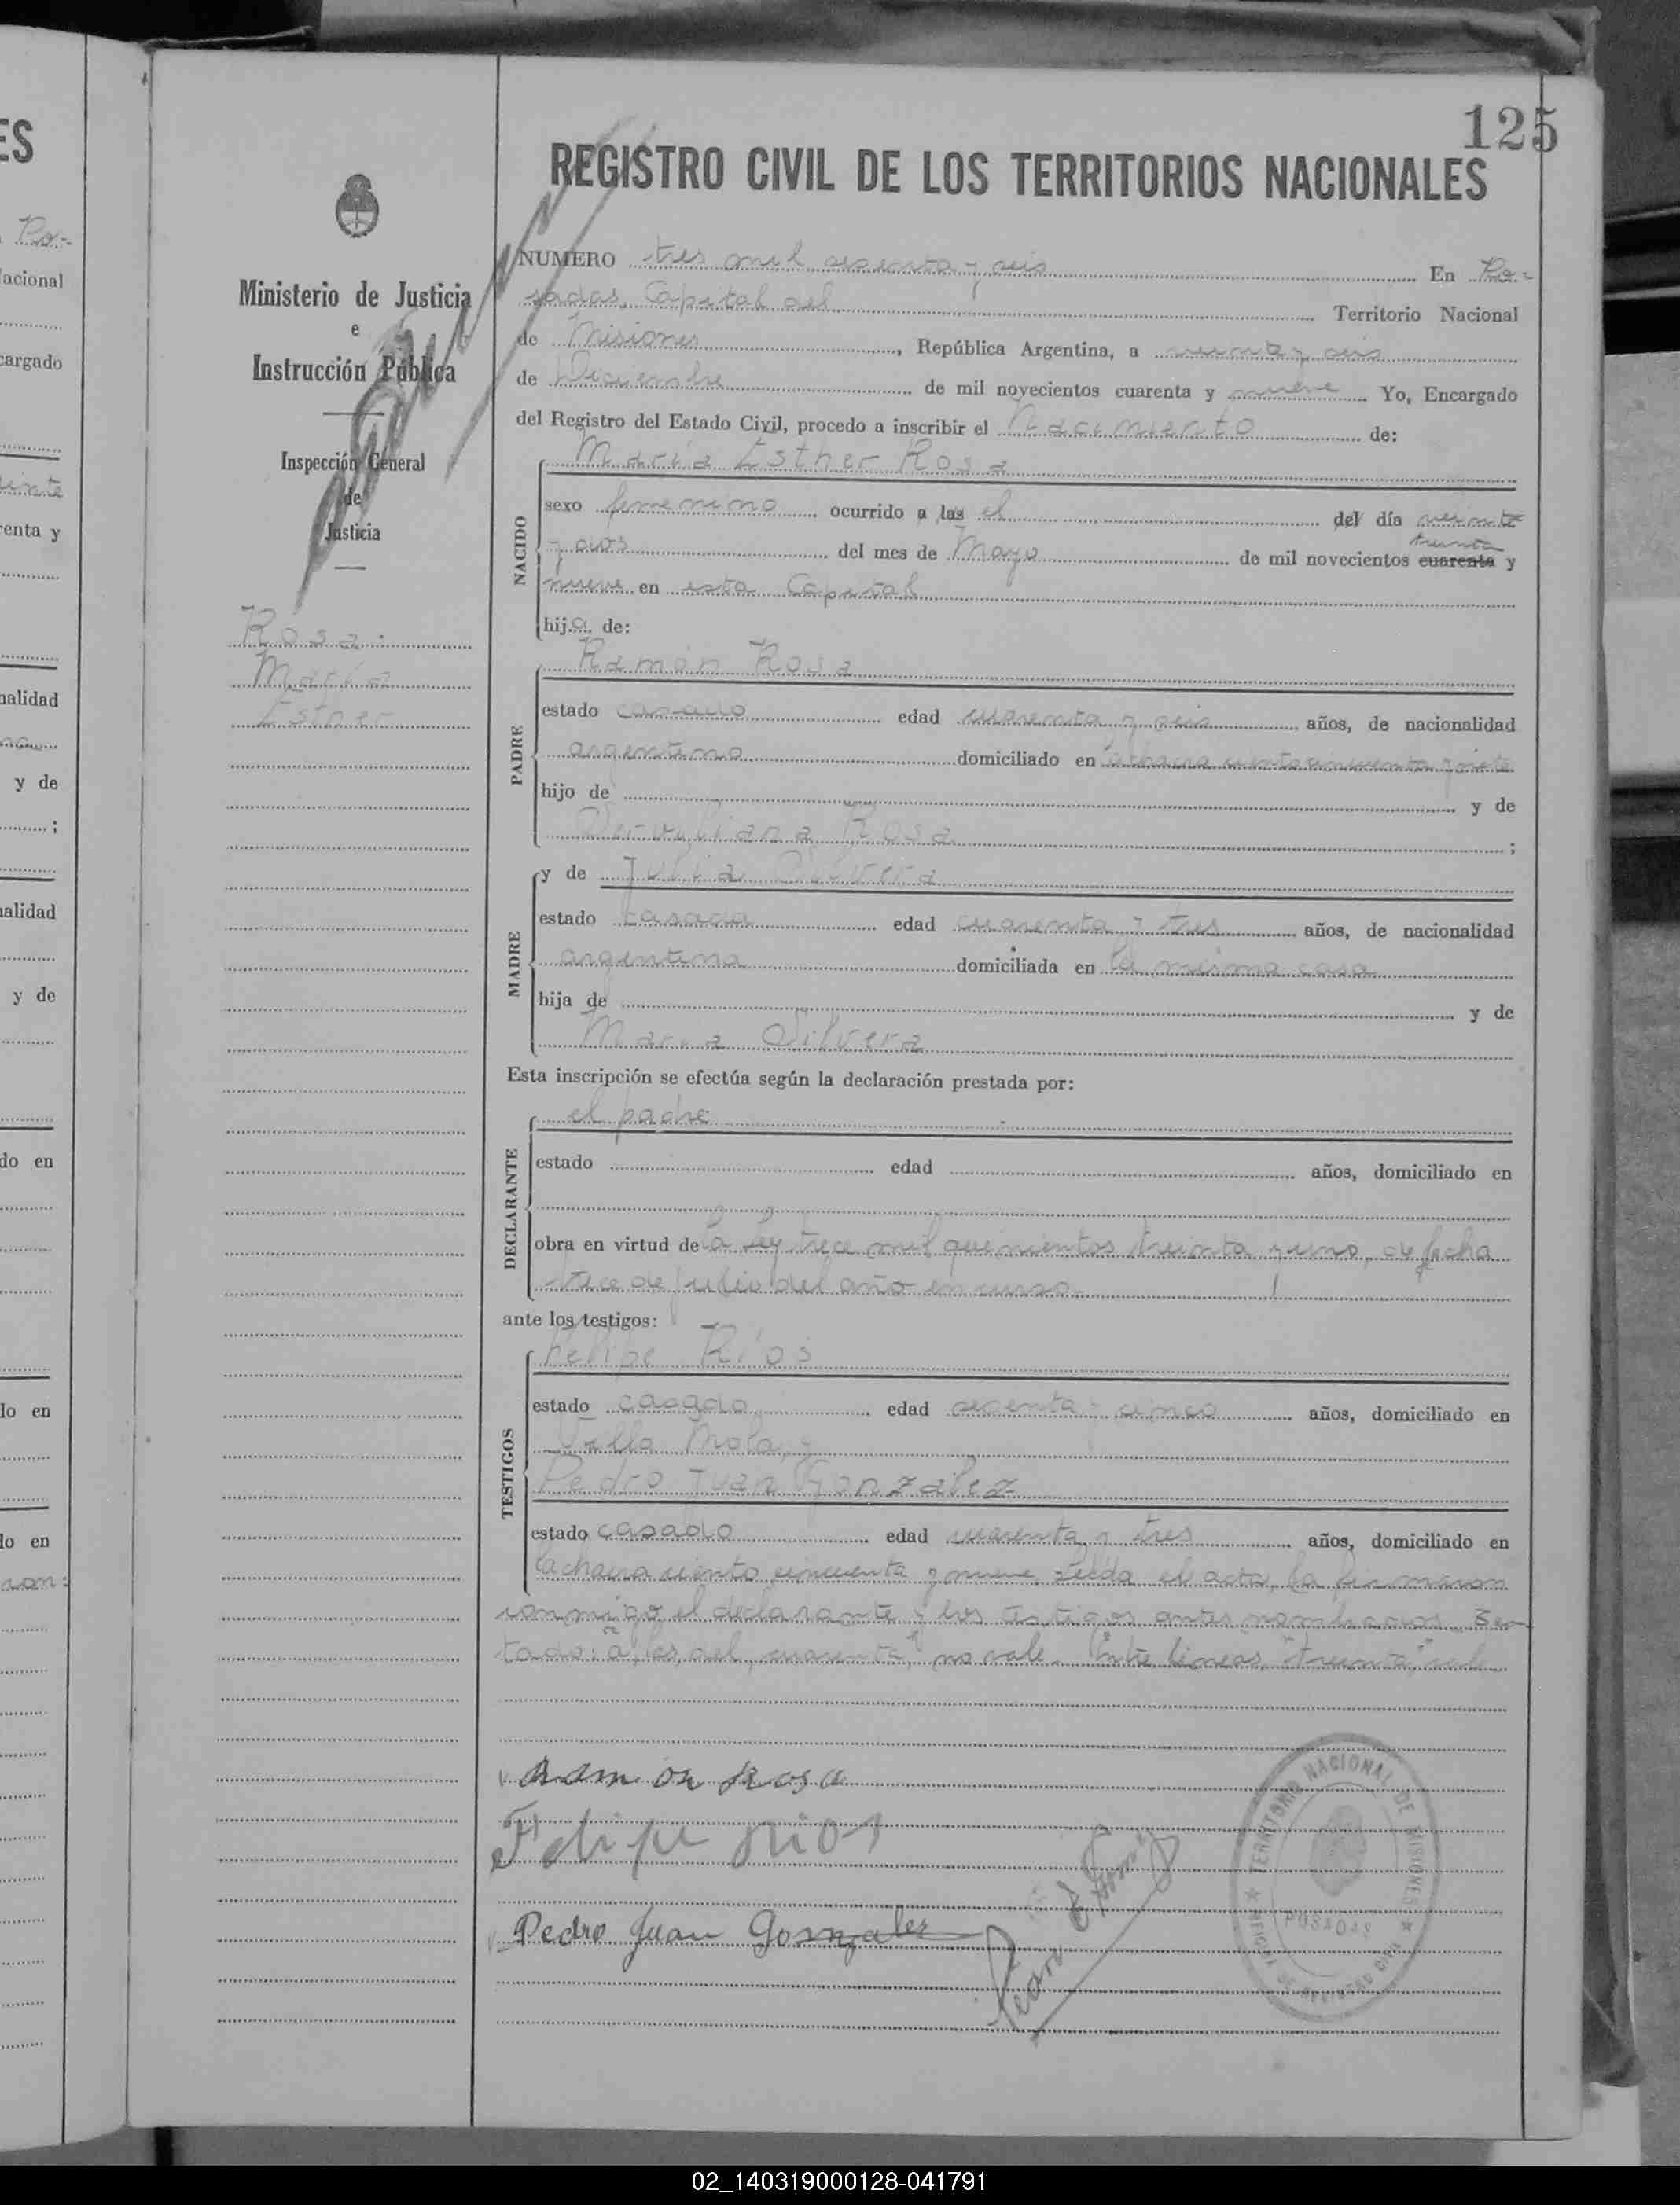 125
REGISTRO CIVIL DE LOS TERRITORIOS NACIONALES
Ministerio de Justicia
e
Instrucción Pública
Inspección General
de
Justicia
Rosa:
María
Esther
NUMERO tres mil sesenta y seis En Po-
sadas, Capital del Territorio Nacional
de Misiones, República Argentina, a veinte y seis
de Diciembre de mil novecientos cuarenta y nueve Yo, Encargado
del Registro del Estado Civil, procedo a inscribir el Nacimiento de:
NACIDO
María Esther Rosa
sexo femenino ocurrido a las el del día veinte
y dos del mes de Mayo de mil novecientos cuarenta treinta y
nueve en esta Capital
hija de:
PADRE
Ramón Rosa
estado casado edad cuarenta y seis años, de nacionalidad
argentino domiciliado en la chacra ciento cincuenta y siete
hijo de y de
Rosa ;
MADRE
y de Julia Silvera
estado casada edad cuarenta y tres años, de nacionalidad
argentina domiciliada en la misma casa
hija de y de
María Silvera
Esta inscripción se efectúa según la declaración prestada por:
DECLARANTE
el padre
estado edad años, domiciliado en
obra en virtud de la ley trece mil quinientos treinta y uno, de fecha
trece de julio del año en curso.
ante los testigos:
TESTIGOS
Felipe Ríos
estado casado edad sesenta y cinco años, domiciliado en
Villa Mola, y
Pedro Juan Gonzalez
estado casado edad cuarenta y tres años, domiciliado en
la chacra ciento cincuenta y nueve. Leída el acta, la firmaron
conmigo el declarante y los testigos antes nombrados. Tes-
tado: "a, las, del, cuarenta", no vale. Entre líneas, "treinta", vale
Ramón Rosa
Felipe Rios
Pedro Juan Gonzalez
TERRITORIO NACIONAL DE MISIONES
POSADAS
OFICINA DE REGISTRO CIVIL
ES
Po-
acional
cargado
einte
enta y
nalidad
y de
;
alidad
y de
do en
lo en
lo en
ron:
02_140319000128-041791